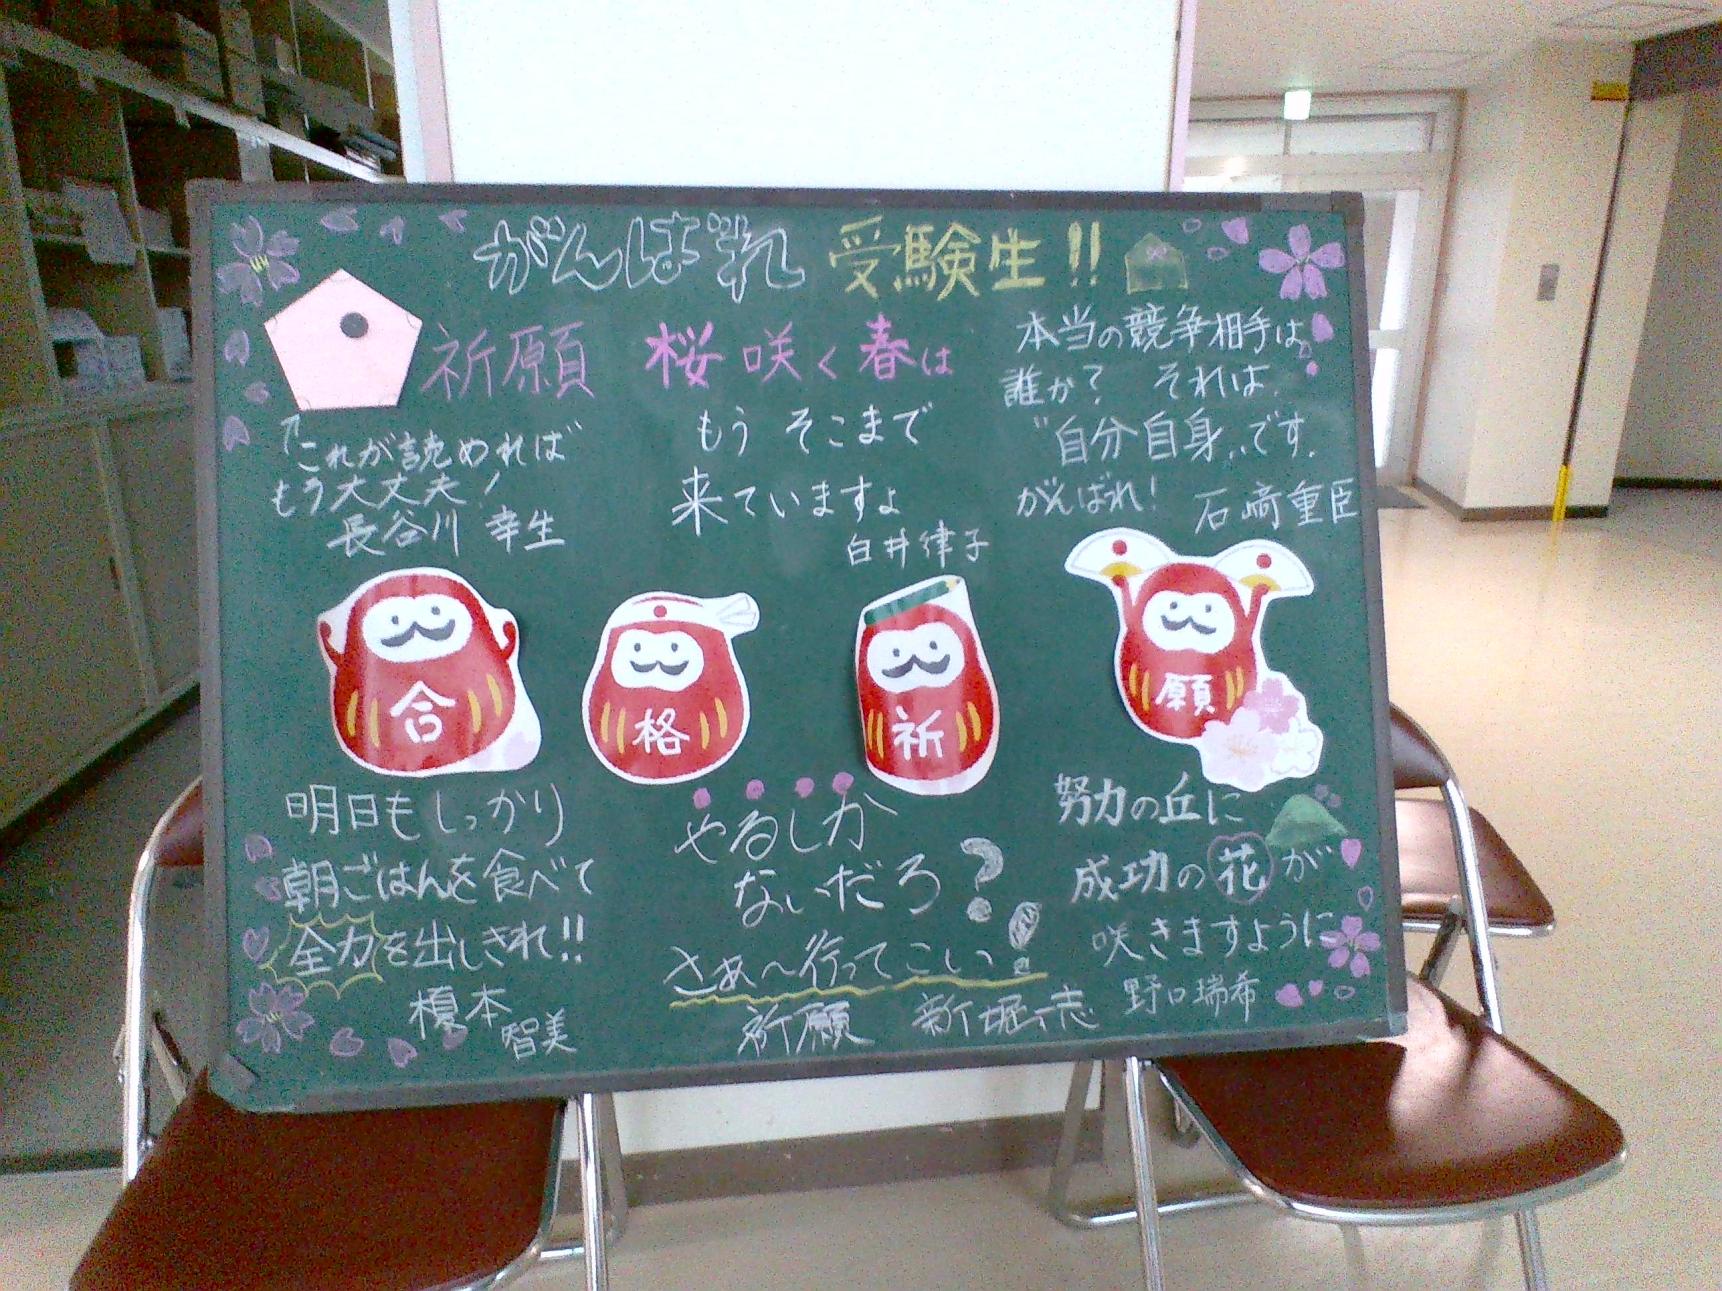 がんばれ 受験生!!
祈願
↑これが読めれば
もう大丈夫!
長谷川 幸生
桜咲く春は
もう そこまで
来ていますよ
白井律子
本当の競争相手は
誰か? それは
"自分自身"です.
がんばれ! 石﨑重臣
合
格
祈
願
明日もしっかり
朝ごはんを食べて
全力を出しきれ!!
榎本
智美
やるしか
ないだろ?
さぁ〜行ってこい!
祈願 新堀
志
努力の丘に
成功の花が
咲きますように
野口瑞希